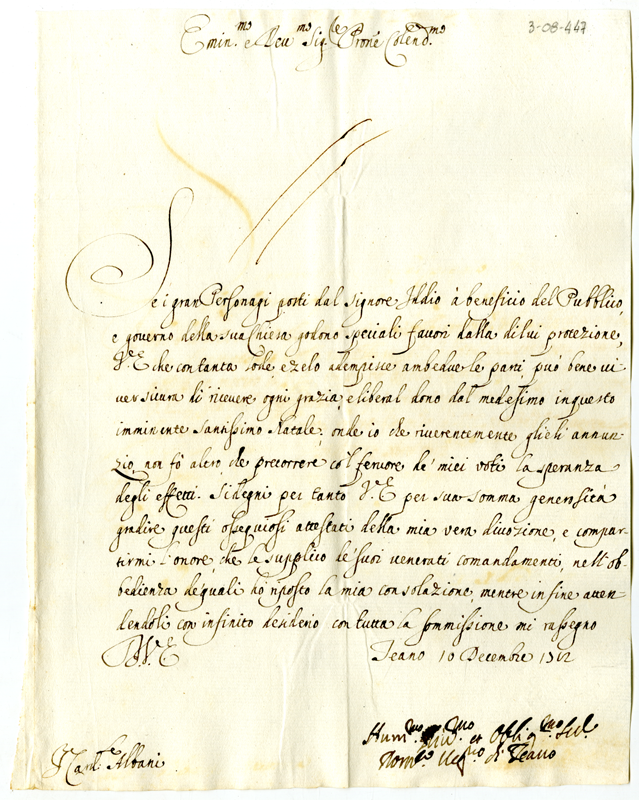 3-08-447
Emin.mo e Reu.mo Sig.le Prone Colend.mo
Se i gran Personagi posti dal Signore Iddio à beneficio del Publico,
e governo della sua Chiesa godono speciali favori dalla di lui protezione,
V.E. che con tanta lode, e zelo adempisce ambedue le parti, può bene vi-
ver sicura di ricevere ogni grazia, e liberal dono dal medesimo in questo
imminente Santissimo Natale; onde io che riverentemente glieli annun-
zio, non fò altro, che precorrere co'l fervore de' miei voti la speranza
degli effetti. Si degni per tanto V.E. per sua somma generosità
gradire questi ossequiosi attestati della mia vera divozione, e compar-
tirmi l'onore, che le supplico de' suoi venerati comandamenti, nell'ob-
bedienza de quali hò riposto la mia consolazione, mentre in fine atten-
dendoli con infinito desiderio con tutta la sommissione mi rassegno
D.V.E.
Teano 10 Decembre 1712
Hum.mo Div.mo et Obblig.mo Ser.
di Teano
Card. Albani